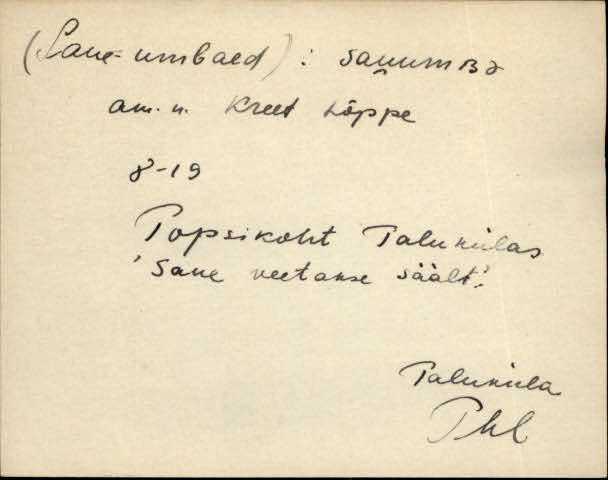 (Saue-umbaed) : sau̯umʙə
am. n. Kreet Lõppe
8-19
Popsikoht Taluküla s
'Saue veetakse säält'.
Taluküla
Phl